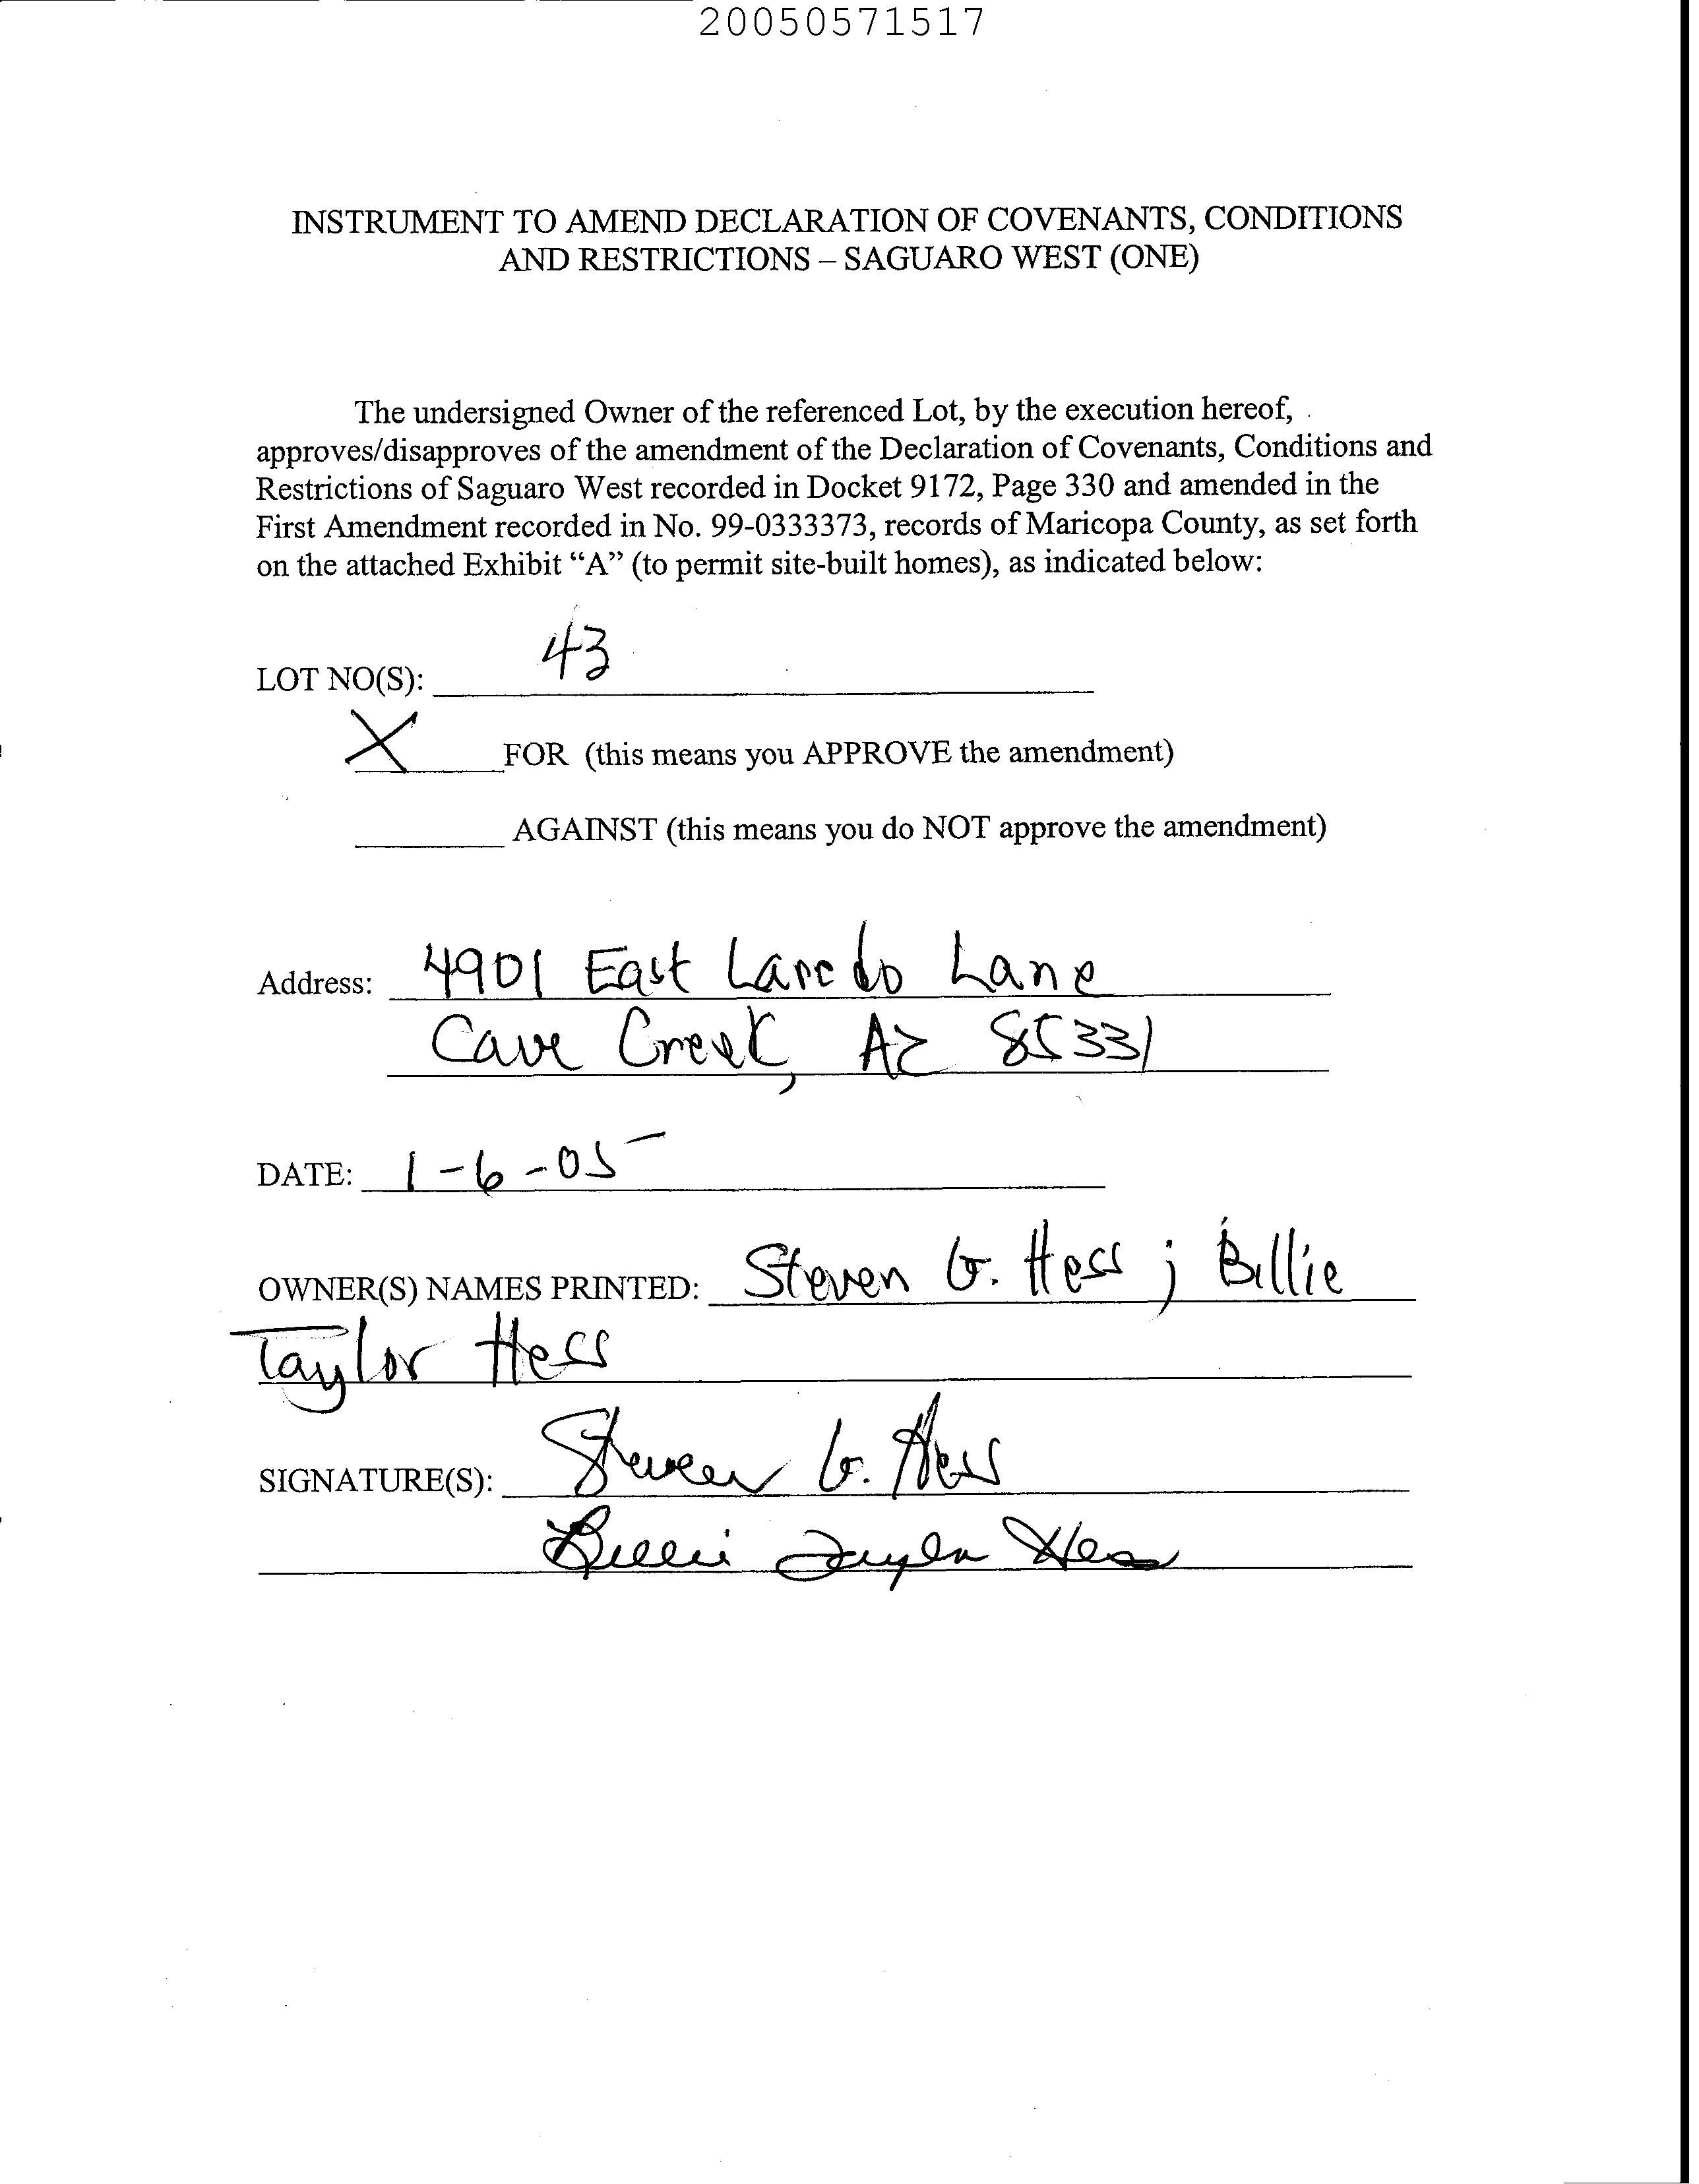 20050571517
INSTRUMENT TO AMEND DECLARATION OF COVENANTS, CONDITIONS
AND RESTRICTIONS – SAGUARO WEST (ONE)
The undersigned Owner of the referenced Lot, by the execution hereof,
approves/disapproves of the amendment of the Declaration of Covenants, Conditions and
Restrictions of Saguaro West recorded in Docket 9172, Page 330 and amended in the
First Amendment recorded in No. 99-0333373, records of Maricopa County, as set forth
on the attached Exhibit “A” (to permit site-built homes), as indicated below:
LOT NO(S): 43
X FOR (this means you APPROVE the amendment)
AGAINST (this means you do NOT approve the amendment)
Address: 4901 East Laredo Lane
Cave Creek, AZ 85331
DATE: 1-6-05
OWNER(S) NAMES PRINTED: Steven G. Hess ; Billie
Taylor Hess
SIGNATURE(S): Steven G. Hess
Billie Taylor Hess